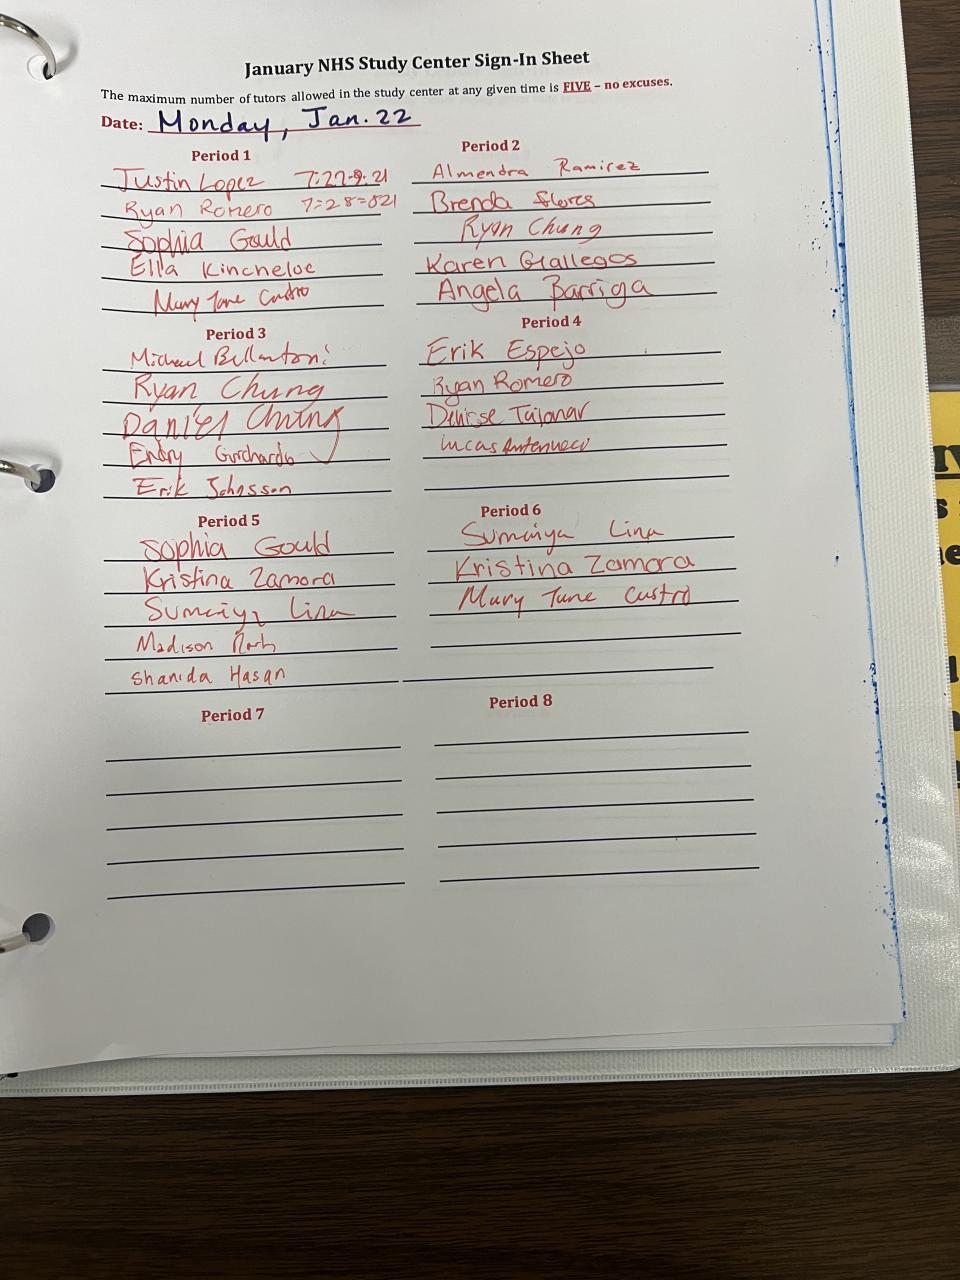 January NHS Study Center Sign-In Sheet
The maximum number of tutors allowed in the study center at any given time is FIVE – no excuses.
Date: Monday, Jan. 22
Period 1
Justin Lopez 7:27-9:21
Ryan Romero 7:28-821
Sophia Gould
Ella Kincheloe
Mary Jane Castro
Period 2
Almendra Ramirez
Brenda flores
Ryan Chung
Karen Gallegos
Angela Barriga
Period 3
Michael
Ryan Chung
Daniel Chung
Erik Johnsson
Period 4
Erik Espejo
Ryan Romero
Denisse
Lucas
Period 5
Sophia Gould
Kristina Zamora
Sumaiya Lina
Madison
Shanida Hasan
Period 6
Sumaiya Lina
Kristina Zamora
Mary Jane Castro
Period 7
Period 8